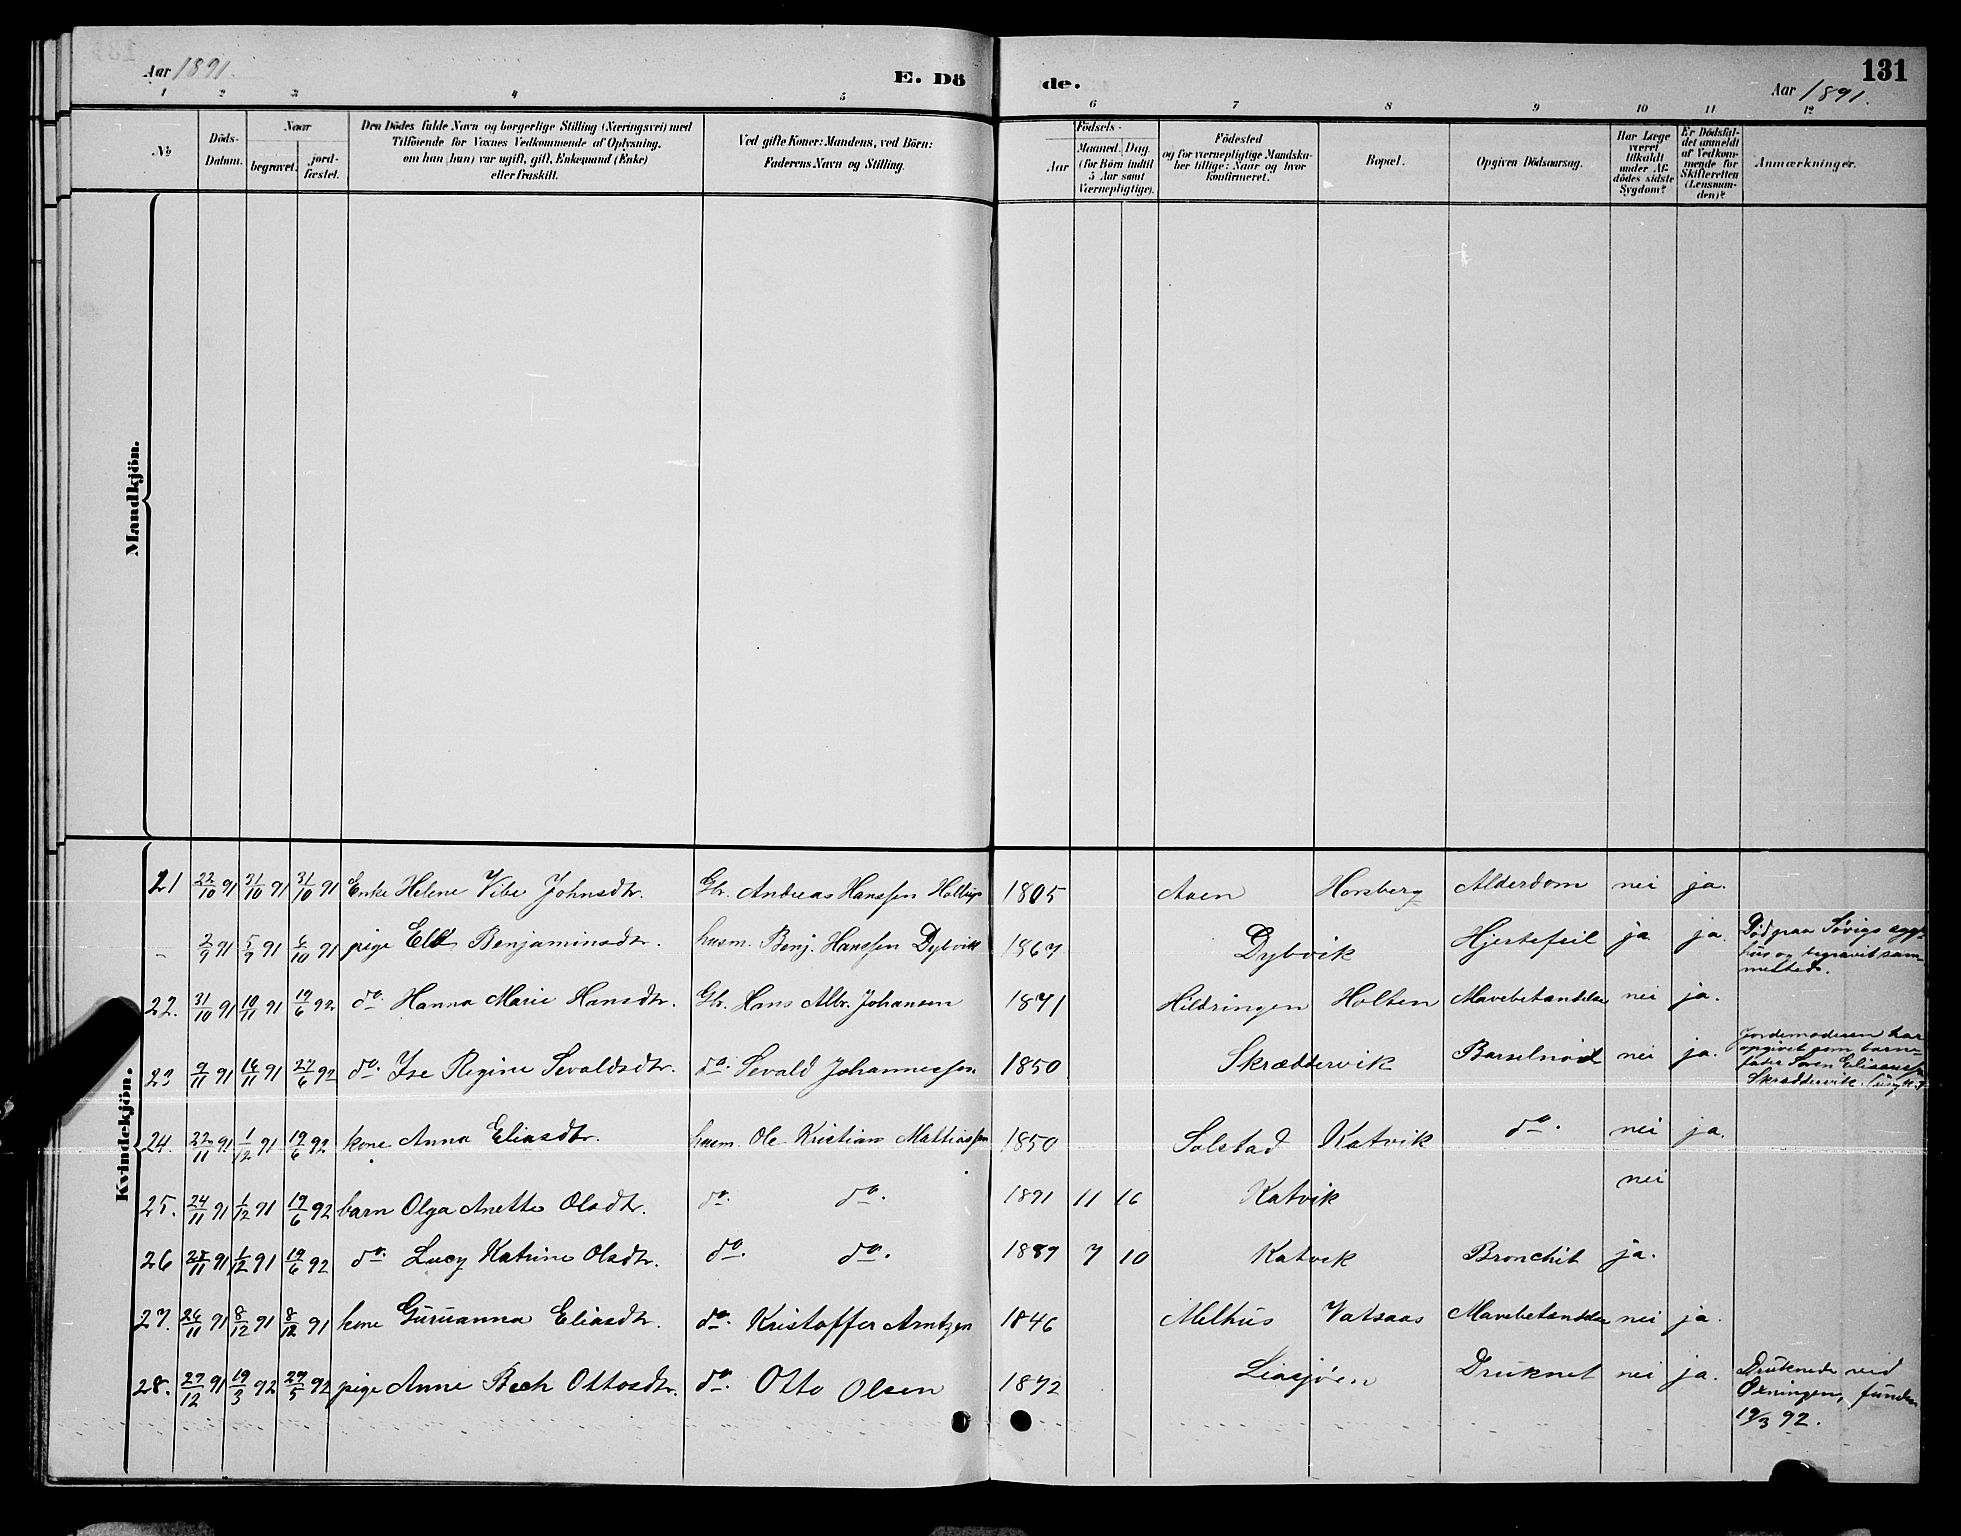 Aar 1891.
E. Dö
de.
131
Aar 1891.
1 2 3 4 5 6 7 8 9 10 11 12
No
Döds-
Datum.
Naar
begravet.
jord-
fæstet.
Den Dödes fulde Navn og borgerlige Stilling (Næringsvei) med
Tilföiende for Voxnes Vedkommende af Oplysning,
om han (hun) var ugift, gift, Enkemand (Enke)
eller fraskilt.
Ved gifte Koner: Mandens, ved Börn:
Faderens Navn og Stilling.
Födsels-
Aar
Maaned.
Dag.
(for Börn indtil
5 Aar samt
Værnepligtige).
Födested
og for værnepligtige Mandska-
ber tillige: Naar og hvor
konfirmeret.
Bopæl.
Opgiven Dödsaarsag.
Har Læge
været
tilkaldt
under Af-
dödes sidste
Sygdom?
Er Dödsfal-
det anmeldt
af Vedkom-
mende for
Skifteretten
(Lensman-
den)?
Anmærkninger.
Mandkjön.
Kvindekjön.
21 22/10 91 31/10 91 31/10 91 Enke Helene Vibe Johnsdtr. Gbr. Andreas Hanssen 1805 Aaen Horsberg Alderdom nei ja.
- 2/9 91 5/9 91 pige Benjaminsdtr. husm. Benj. Hanssen Dybvik 1867 Dybvik Hjertefeil ja ja. Död paa Søvigs syge-
hus og begravet sam-
mesteds.
22. 31/10 91 10/11 91 19/6 92 do. Hanna Marie Hansdtr. Gbr. Hans Albr. Johansen 1871 Hildringen Holten Mavebetændelse nei ja.
23 9/11 91 16/11 91 27/6 92 do. Ise Regine Sevaldsdtr. do. Sevald Johannessen 1850 Skræddervik Barselnød nei ja. Jordemoderen har
opgivet som barne-
fader Søren Eliassen
Skræddervik.
24. 22/11 91 1/12 91 19/6 92 kone Anna Eliasdtr. husm. Ole Kristian Mathiassen 1850 Solstad Katvik do. nei ja.
25. 24/11 91 1/12 91 19/6 92 barn Olga Anette Olsdtr. do. do. 1891 11 16 Katvik nei
26 25/11 91 1/12 91 19/6 92 do. Lucy Katrine Olsdtr. do. do. 1889 7 10 Katvik Bronchit ja.
27. 26/11 91 8/12 91 8/12 91 kone Guruanna Eliasdtr. do. Kristoffer Arntzen 1846 Melhus Vatsaas Mavebetændelse nei ja.
28. 27/12 91 19/3 92 29/5 92 pige Anne Bech Ottosdtr. do. Otto Olsen 1872 Liasjøen Druknet nei ja. Druknede ved
Øxningen, funden
19/3 92.